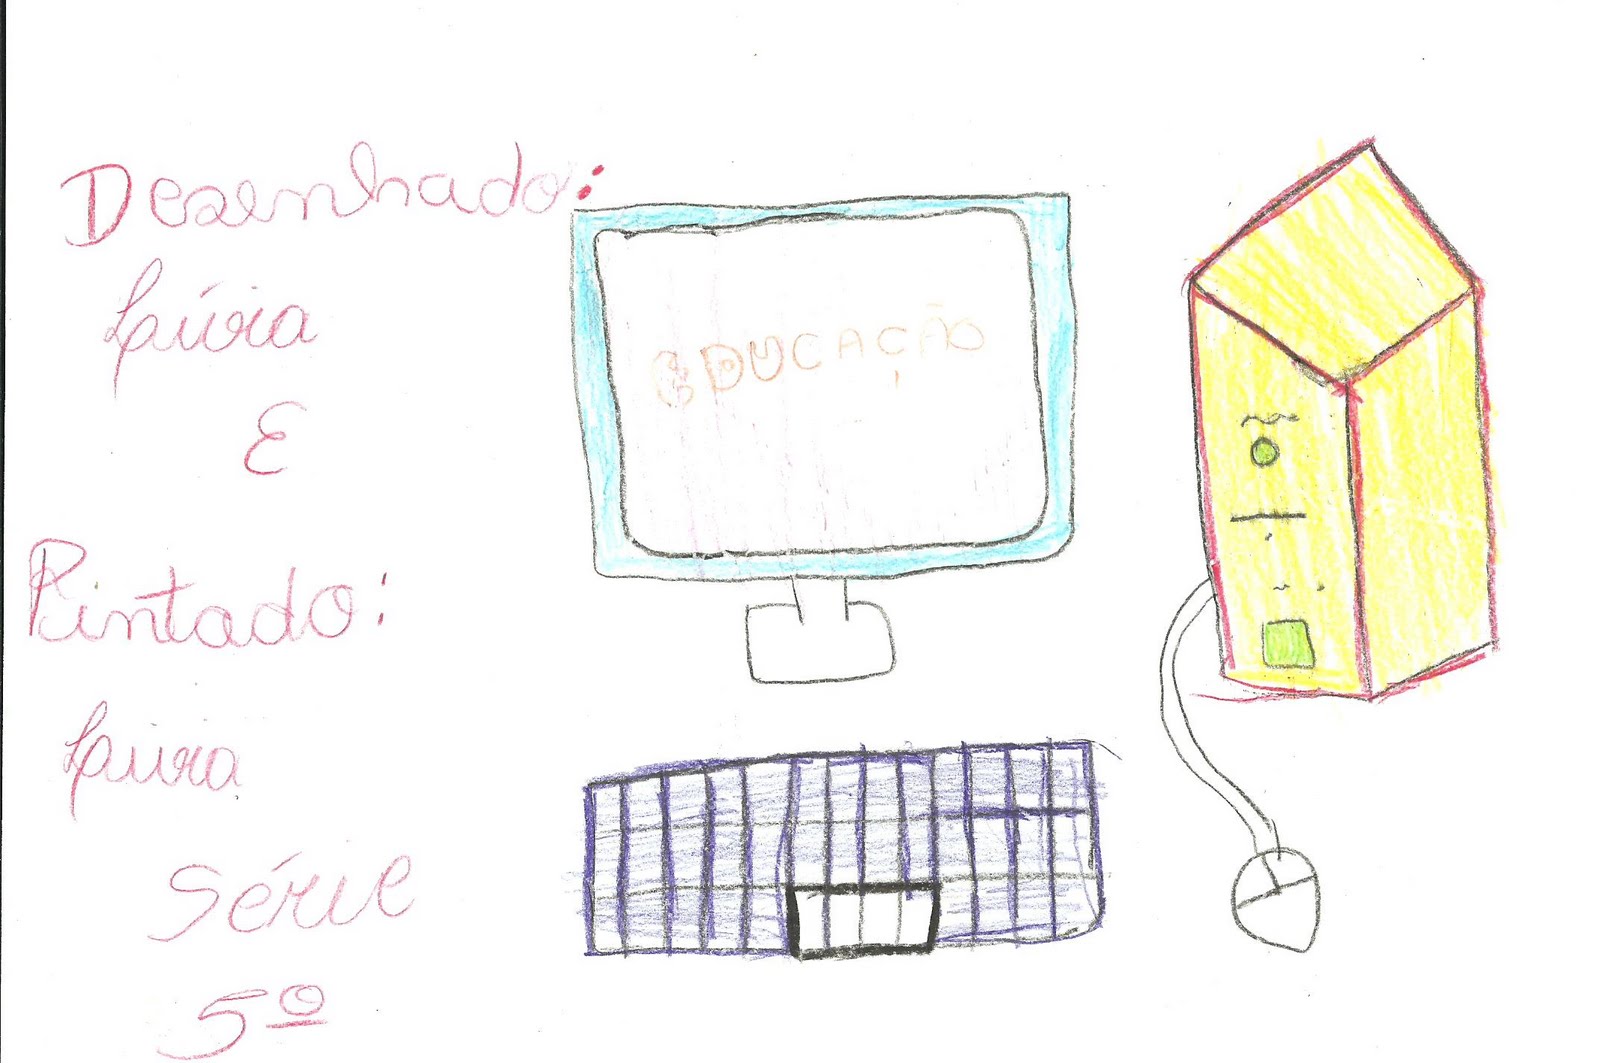 Desenhado:
Laúra
E
Pintado:
Laura
Série
5º
EDUCAÇÃO